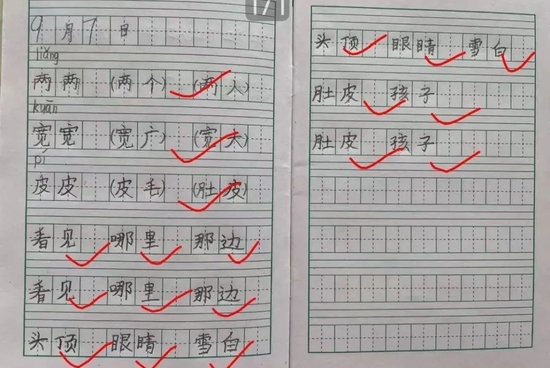 1/1
9月7日
liǎng
两两 (两个) (两人)
kuān
宽宽 (宽广) (宽大)
pí
皮皮 (皮毛) (肚皮)
看见 哪里 那边
看见 哪里 那边
头顶 眼睛 雪白
头顶 眼睛 雪白
肚皮 孩子
肚皮 孩子